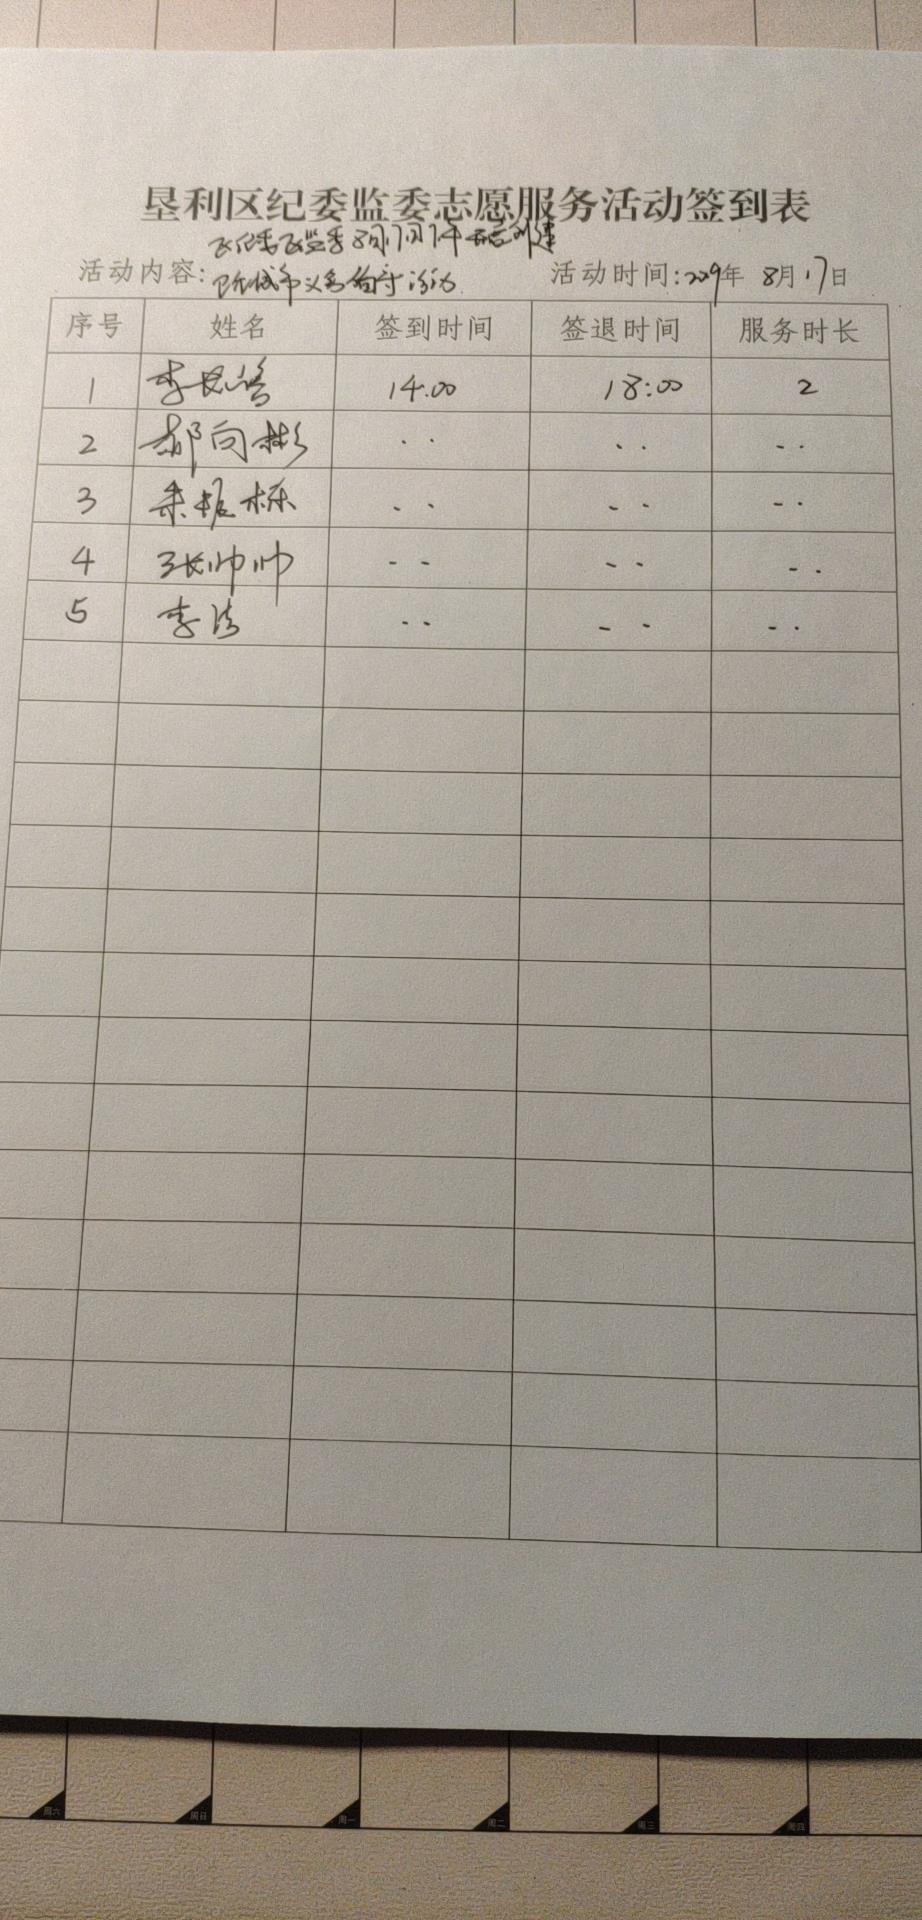 垦利区纪委监委志愿服务活动签到表
区纪委区监委8月17日下午 创建
活动内容: 城市义务 活动 活动时间:2019年 8月17日
序号 姓名 签到时间 签退时间 服务时长
1 李 14.00 18:00 2
2 郝向彬 ·· ·· ··
3 ·· ·· ··
4 张帅帅 -- ·· -·
5 李洁 ·· -· -·
周六 周日 周一 周二 周三 周四